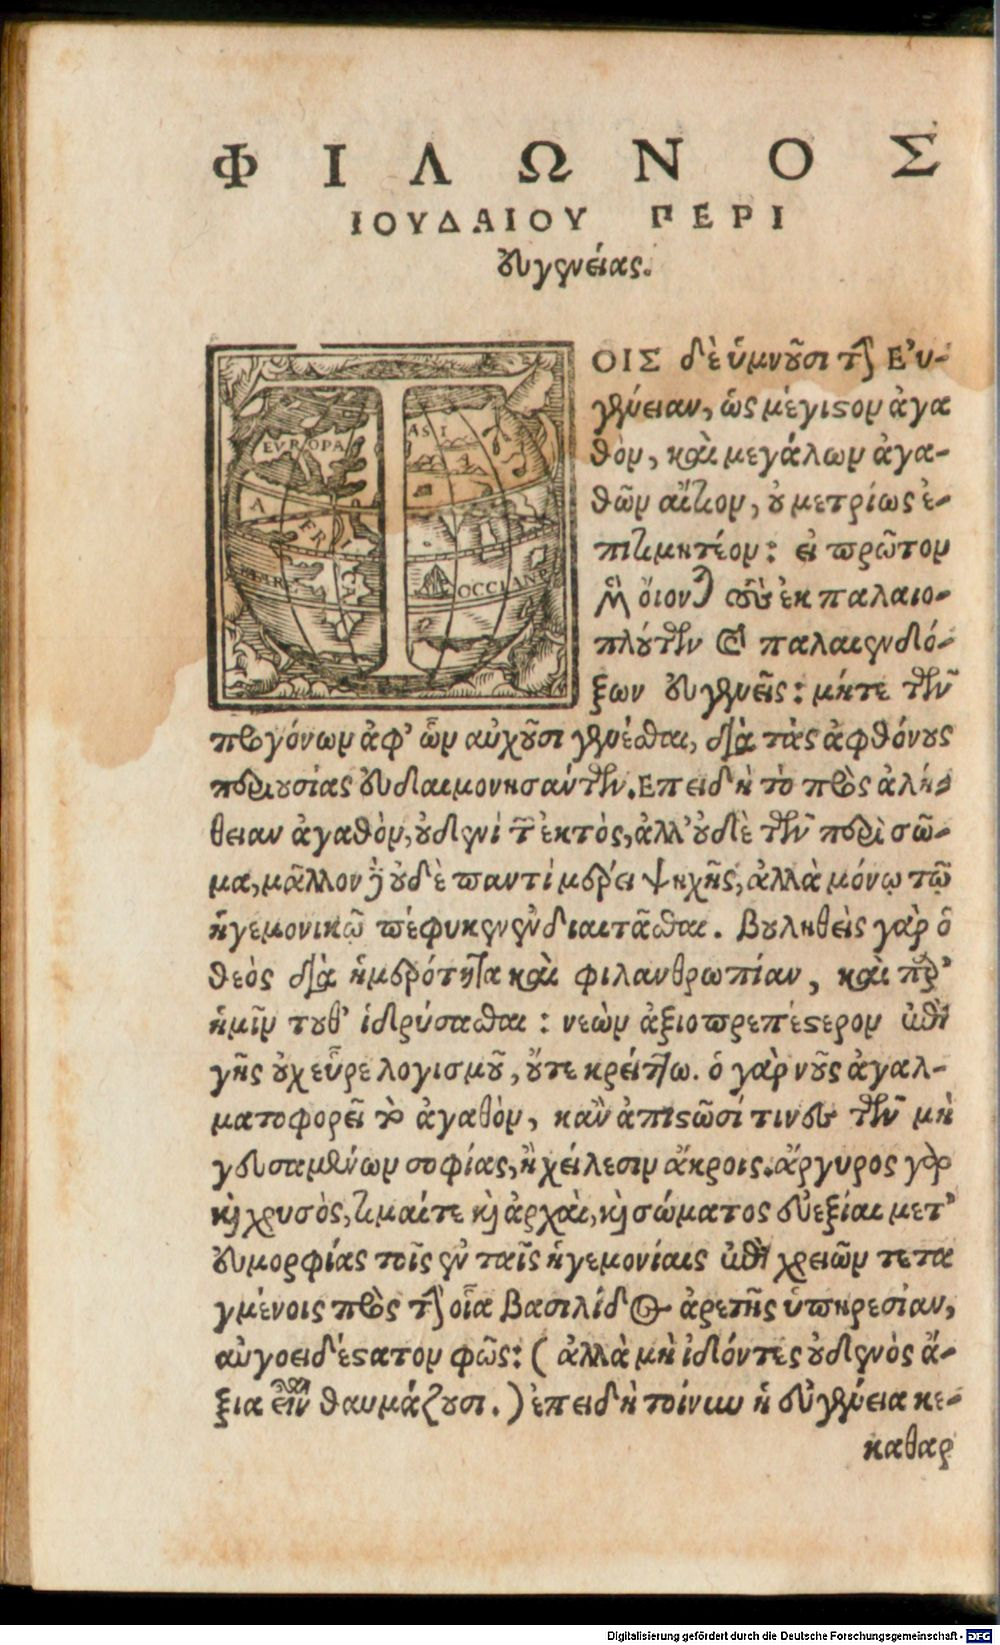 ΦΙΛΩΝΟΣ
ΙΟΥΔΑΙΟΥ ΠΕΡΙ
ευγενείας.
ΟΙΣ δὲ ὑμνοῦσι τὴν Εὐ-
γένειαν, ὡς μέγιστον ἀγα
θὸν, καὶ μεγάλων ἀγα-
θῶν αἴτιον, οὐ μετρίως ἐ-
πιτιμητέον: εἰ πρῶτον
μὲν οἴονται τοὺς ἐκ παλαιο-
πλούτων καὶ παλαιενδό-
ξων ευγενεῖς: μήτε τῶν
προγόνων ἀφ' ὧν αὐχοῦσι γενέσθαι, διὰ τὰς ἀφθόνους
περιουσίας ευδαιμονησάντων. Επειδὴ τὸ πρὸς ἀλή-
θειαν ἀγαθὸν, οὐδενὶ τῶν ἐκτὸς, ἀλλ' οὐδὲ τῶν περὶ σῶ-
μα, μᾶλλον δὲ οὐδὲ παντὶ μέρει ψυχῆς, ἀλλὰ μόνῳ τῷ
ἡγεμονικῷ πέφυκεν ἐνδιαιτᾶσθαι. Βουληθεὶς γὰρ ὁ
θεὸς διὰ ἡμερότητα καὶ φιλανθρωπίαν, καὶ παρ'
ἡμῖν τοῦθ' ἱδρύσασθαι: νεὼν ἀξιοπρεπέστερον ἐπὶ
γῆς οὐχ εὗρε λογισμοῦ, οὔτε κρείττω. ὁ γὰρ νοῦς ἀγαλ-
ματοφορεῖ τὸ ἀγαθὸν, κἂν ἀπιστῶσί τινες τῶν μὴ
γευσαμένων σοφίας, ἢ χείλεσιν ἄκροις. ἄργυρος γὰρ
καὶ χρυσὸς, τιμαί τε καὶ ἀρχαὶ, καὶ σώματος εὐεξίαι μετ'
ευμορφίας τοῖς ἐν ταῖς ἡγεμονίαις ἐπὶ χρειῶν τετα
γμένοις πρὸς τὴν οἷα βασιλίδος ἀρετῆς ὑπηρεσίαν,
αὐγοειδέστατον φῶς: (ἀλλὰ μὴ ἰδόντες οὐδενὸς ἄ-
ξια εἶναι θαυμάζουσι.) ἐπειδὴ τοίνυν ἡ εὐγένεια κε-
καθαρ
EVROPA
ASI
AFRI
CA
MARE
OCCEANV
Digitalisierung gefördert durch die Deutsche Forschungsgemeinschaft - DFG